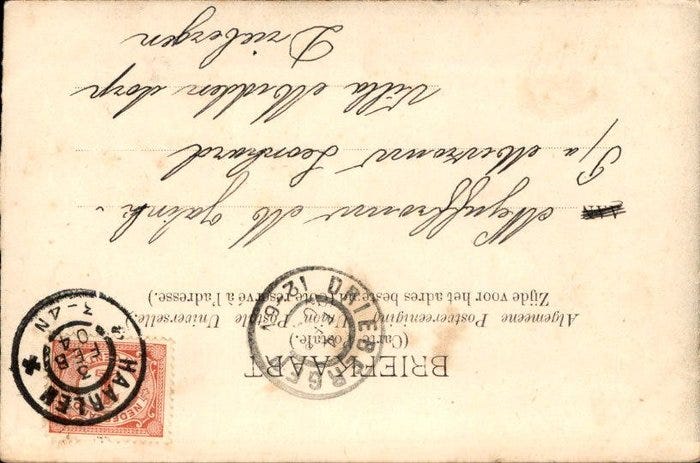 BRIEFKAART
(Carte Postale.)
Algemeene Postvereeniging (Union Postale Universelle.)
Zijde voor het adres bestemd. (Côté réservé à l'adresse.)
AAN Mejuffrouw M
P/a Mevrouw Leonhard
Villa Midden dorp
Driebergen
HAARLEM
3 FEB 04
3-4N
DRIEBERGEN